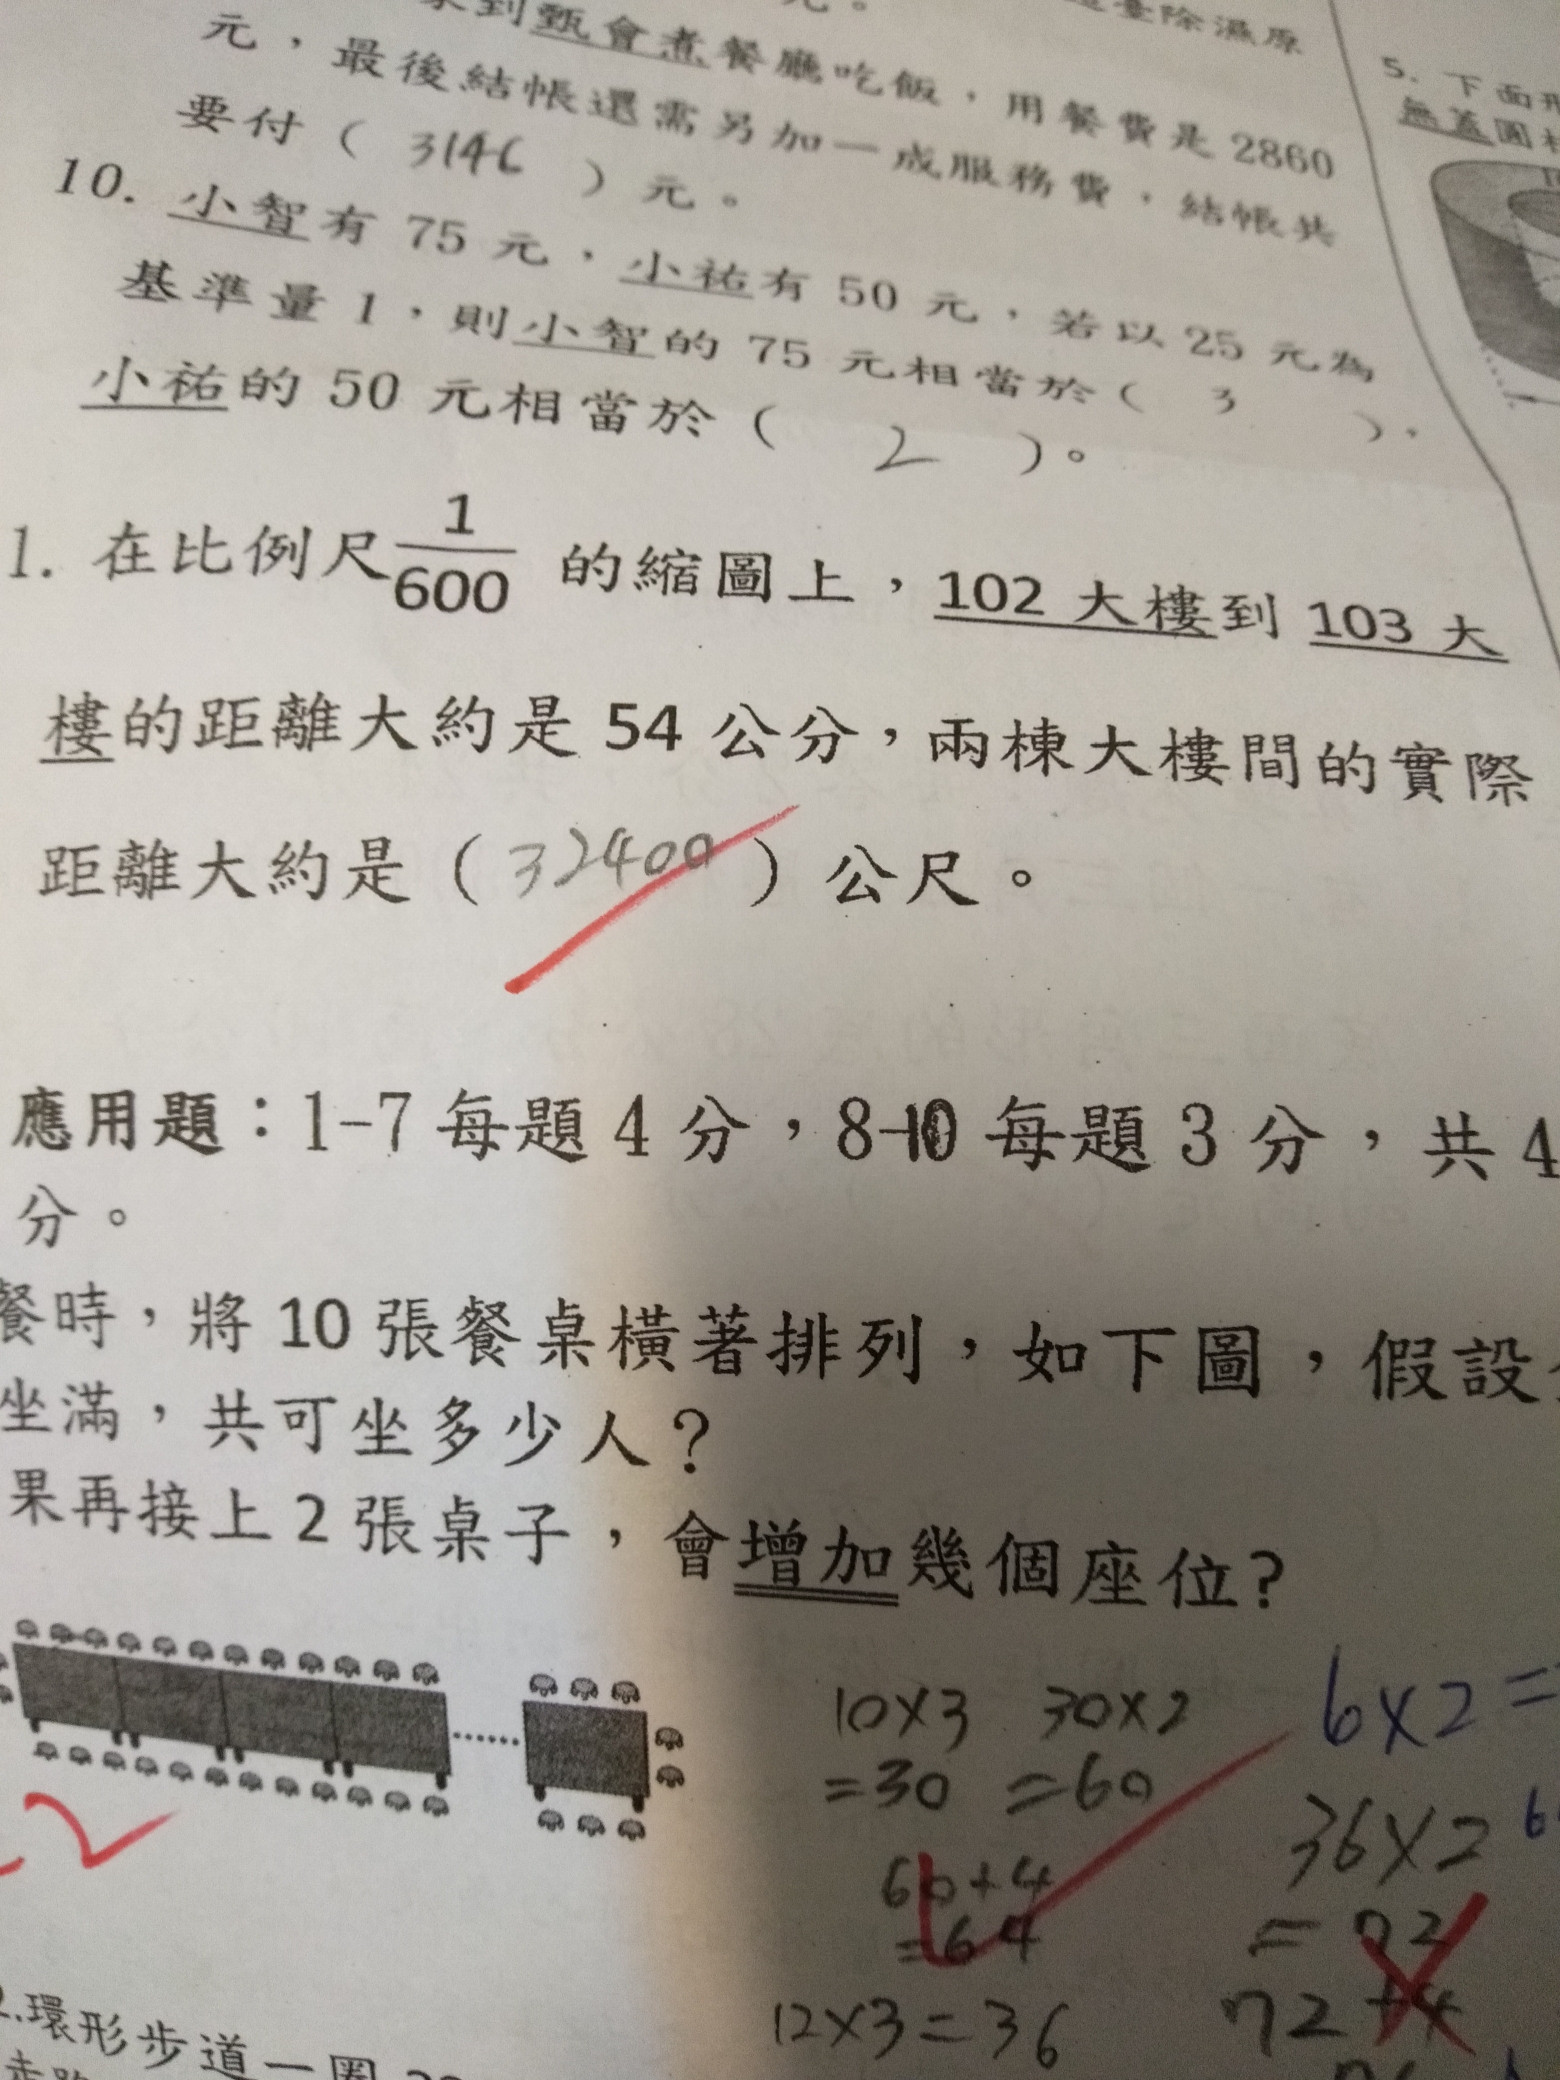 到甄會煮餐廳吃飯，用餐費是 2860
元，最後結帳還需另加一成服務費，結帳共
要付（ 3146 ）元。
10. 小智有 75 元，小祐有 50 元，若以 25 元為
基準量 1，則小智的 75 元相當於（ 3 ），
小祐的 50 元相當於（ 2 ）。
1. 在比例尺 1/600 的縮圖上，102 大樓到 103 大
樓的距離大約是 54 公分，兩棟大樓間的實際
距離大約是（32400）公尺。
應用題：1-7 每題 4 分，8-10 每題 3 分，共 4
分。
餐時，將 10 張餐桌橫著排列，如下圖，假設
坐滿，共可坐多少人？
果再接上 2 張桌子，會增加幾個座位?
10×3 30×2
=30 =60
60+4
=64
12×3=36
6×2=
36×2
=72
72+4
2.環形步道一圈
臺除濕原
5. 下面
無蓋圓